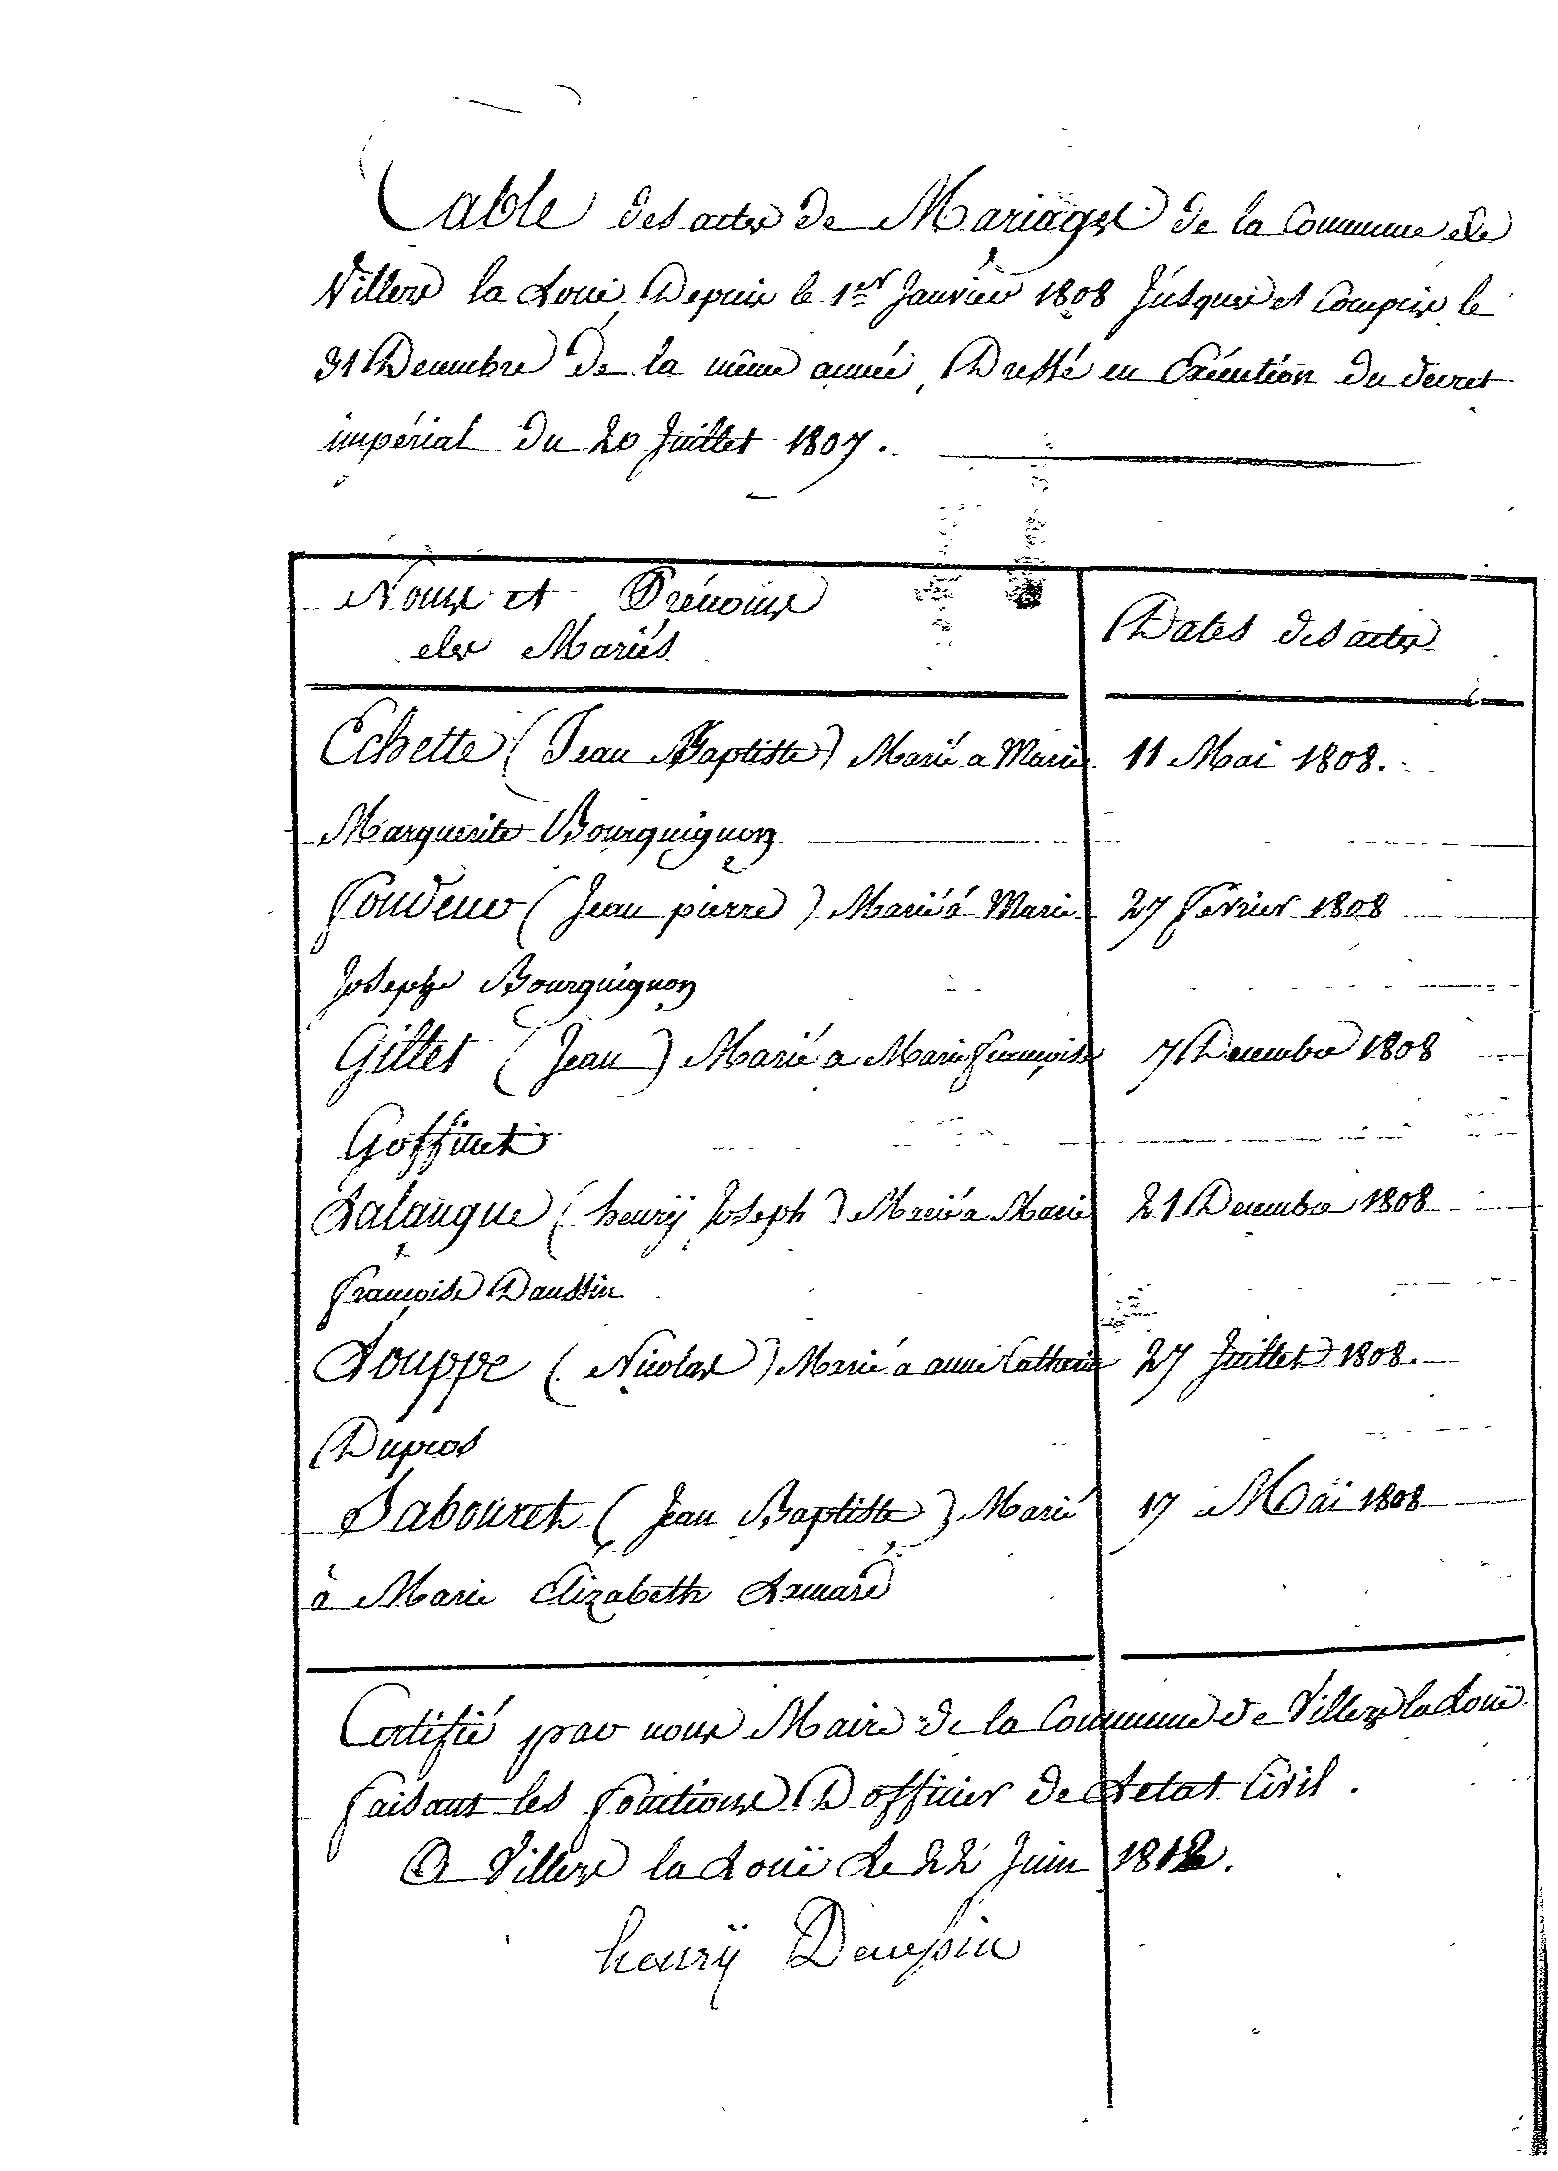 Table des actes de Mariages de la Commune de
Villers la Loue Depuis le 1er Janvier 1808 Jusques et Compris le
31 Decembre de la même année, Dressé en Exécution du decret
impérial du 20 Juillet 1807.
Noms et Prénoms
des Mariés
Dates des actes
Echette (Jean Baptiste) Marié a Marie 11 Mai 1808.
Marguerite Bourguignon
(Jean pierre) Marié á Marie 27 Février 1808
Josephe Bourguignon
Gillet (Jean) Marié a Marie françoise 7 Decembre 1808
Goffinet
Lalangue (henrÿ Joseph) Marié a Marie 21 Decembre 1808
françoise Daussin
Louppe (Nicolas) Marié a anne Catherine 27 Juillet 1808.
Dupros
Sabouret (Jean Baptiste) Marié 17 Maï 1808
à Marie Elizabeth
Certifié par nous Maire de la Commune de Villers la Loue
faisant les fonctions D officier de Letat Civil.
A Villers la Louë Le 22 Juin 1812.
henrÿ